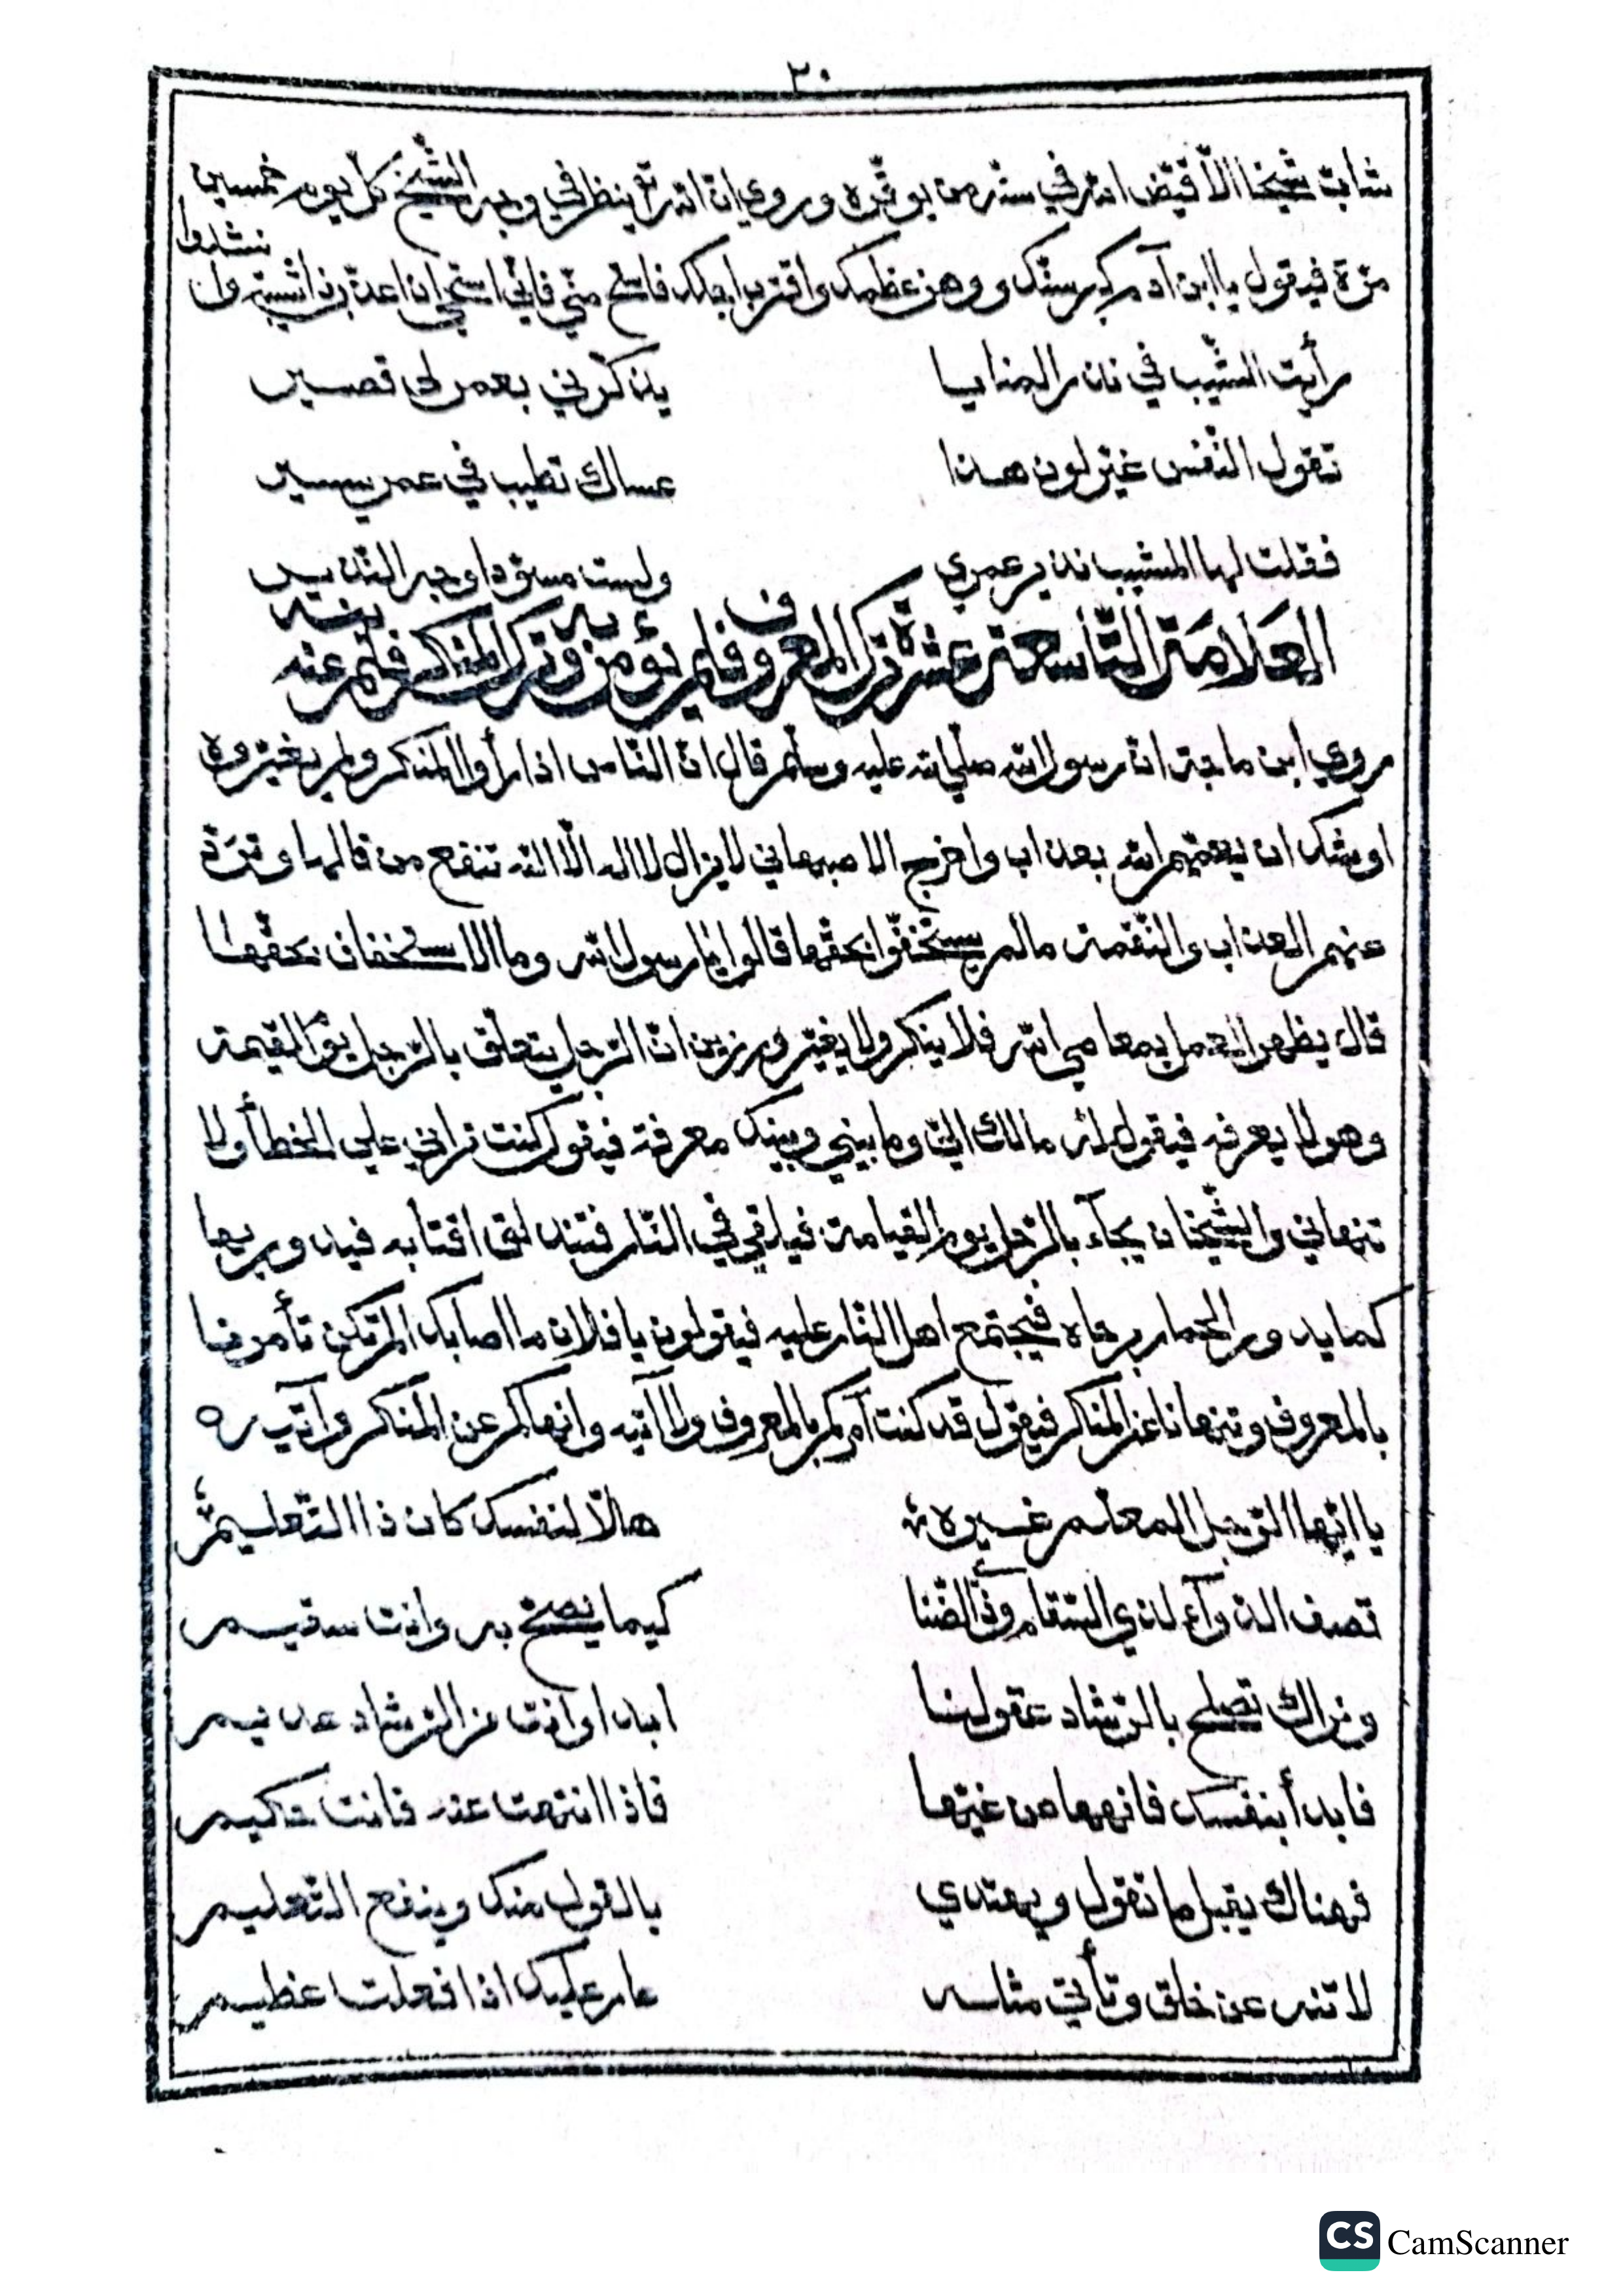 ٣٠
شابّ شيخا الّا قيّض الله في سنّه من يوقّره وروي انّ الله تع ينظر في وجه الشّيخ كلّ يوم خمسين
مرّة فيقول يا ابن آدم كبر سنّك ووهن عظمك واقترب اجلك فاستح منّي فانّي استحي ان اعذّب ذا شيبة وانشدوا
رأيت الشّيب في نذر المنايا يذكّرني بعمر لي قصير
تقول النّفس غيّر لون هذا عساك تطيب في عمر يسير
فقلت لها المشيب نذير عمري ولست مسوّدا وجه النّذير
العلامة التّاسعة عشرة ترك المعروف فلم يؤمر به وترك المنكر فلم ينه عنه
روي ابن ماجة انّ رسول الله صلّي الله عليه وسلّم قال انّ النّاس اذا رأوا المنكر ولم يغيّروه
اوشك ان يعمّهم الله بعذاب واخرج الاصبهاني لا يزال لا اله الّا الله تنفع من قالها وتردّ
عنهم العذاب والنّقمة ما لم يستخفّوا بحقّها قالوا يا رسول الله وما الاستخفاف بحقّها
قال يظهر العمل بمعاصي الله فلا ينكر ولا يغيّر ورزين انّ الرّجل يتعلّق بالرّجل يوم القيمة
وهو لا يعرفه فيقول له ما لك اليّ وما بيني وبينك معرفة فيقول كنت تراني علي الخطأ ولا
تنهاني والشّيخان يجآء بالرّجل يوم القيامة فيلقي في النّار فتندلق اقتابه فيدور بها
كما يدور الحمار برحاه فيجتمع اهل النّار عليه فيقولون يا فلان ما اصابك الم تكن تأمرنا
بالمعروف وتنهانا عن المنكر فيقول قد كنت آمركم بالمعروف ولا آتيه وانهاكم عن المنكر وآتيه
يا ايّها الرّجل المعلّم غيره هلّا لنفسك كان ذا التّعليم
تصف الدّوآء لذي السّقام وذي الضّنا كيما يصحّ به وانت سقيم
ونراك تصلح بالرّشاد عقولنا ابدا وانت من الرّشاد عديم
فابدأ بنفسك فانهها من غيّها فاذا انتهت عنه فانت حكيم
فهناك يقبل ما تقول ويهتدي بالقول منك وينفع التّعليم
لا تنه عن خلق وتأتي مثله عار عليك اذا فعلت عظيم
CS CamScanner